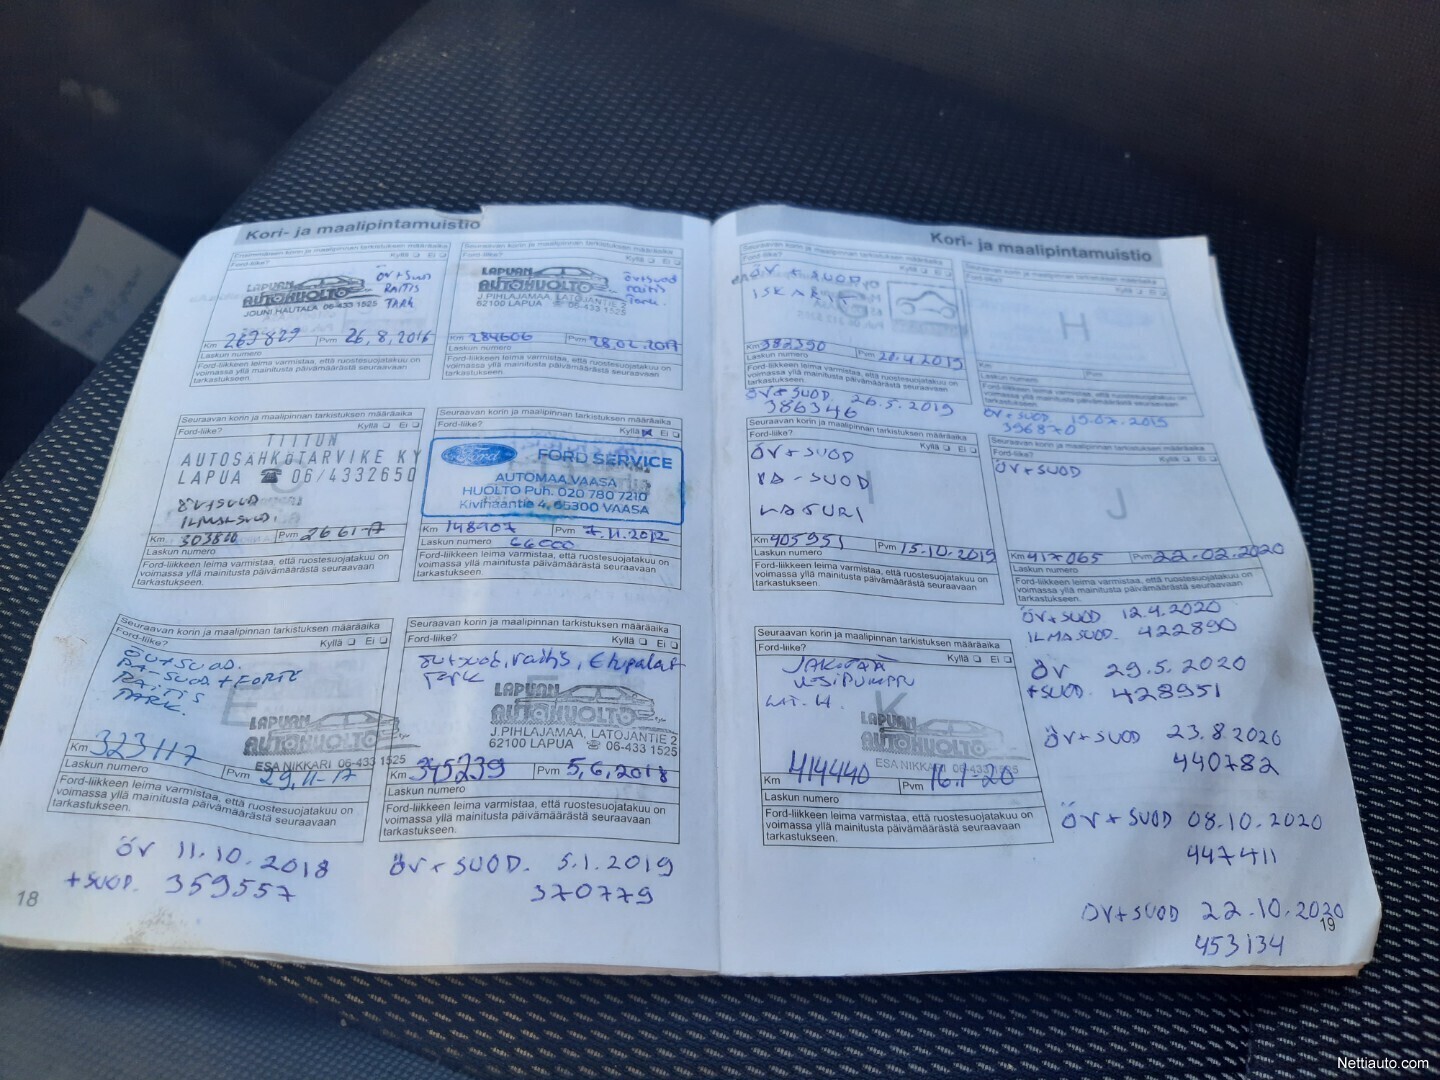 Kori- ja maalipintamuistio
Seuraavan korin ja maalipinnan tarkistuksen määräaika
Ford-liike? Kyllä Ei
LAPUAN
AUTOHUOLTO
JOUNI HAUTALA 06-433 1525
ÖV+SUOD
RAITIS
TARK
Km 269829 Pvm 26,8,2016
Laskun numero
Ford-liikkeen leima varmistaa, että ruostesuojatakuu on
voimassa yllä mainitusta päivämäärästä seuraavaan
tarkastukseen.
Seuraavan korin ja maalipinnan tarkistuksen määräaika
Ford-liike? Kyllä Ei
LAPUAN
AUTOHUOLTO
J.PIHLAJAMAA, LATOJANTIE 2
62100 LAPUA ☎ 06-433 1525
öv+suod
raitis
Tark.
Km 284606 Pvm 28.02.2017
Laskun numero
Ford-liikkeen leima varmistaa, että ruostesuojatakuu on
voimassa yllä mainitusta päivämäärästä seuraavaan
tarkastukseen.
Seuraavan korin ja maalipinnan tarkistuksen määräaika
Ford-liike? Kyllä Ei
TIITUN
AUTOSÄHKÖTARVIKE KY
LAPUA ☎ 06/4332650
ÖV+SUOD
ILMASUOD.
Km 303800 Pvm 26 6 1-17
Laskun numero
Ford-liikkeen leima varmistaa, että ruostesuojatakuu on
voimassa yllä mainitusta päivämäärästä seuraavaan
tarkastukseen.
Seuraavan korin ja maalipinnan tarkistuksen määräaika
Ford-liike? Kyllä Ei
Ford FORD SERVICE
AUTOMAA VAASA
HUOLTO Puh. 020 780 7210
Kivihaantie 4, 65300 VAASA
Km 148107 Pvm 7.11.2012
Laskun numero 66000
Ford-liikkeen leima varmistaa, että ruostesuojatakuu on
voimassa yllä mainitusta päivämäärästä seuraavaan
tarkastukseen.
Seuraavan korin ja maalipinnan tarkistuksen määräaika
Ford-liike? Kyllä Ei
ÖV+SUOD.
PA-SUOD+FORTE
RAITIS
TARK.
E
LAPUAN
AUTOHUOLTO
ESA NIKKARI 06-433 1525
Km 323117
Laskun numero Pvm 29,11-17
Ford-liikkeen leima varmistaa, että ruostesuojatakuu on
voimassa yllä mainitusta päivämäärästä seuraavaan
tarkastukseen.
Seuraavan korin ja maalipinnan tarkistuksen määräaika
Ford-liike? Kyllä Ei
öv+suod, raitis,
TARK
LAPUAN
AUTOHUOLTO
J.PIHLAJAMAA, LATOJANTIE 2
62100 LAPUA ☎ 06-433 1525
Km 345239 Pvm 5,6,2018
Laskun numero
Ford-liikkeen leima varmistaa, että ruostesuojatakuu on
voimassa yllä mainitusta päivämäärästä seuraavaan
tarkastukseen.
ÖV 11.10.2018
+SUOD. 359557
ÖV+SUOD. 5.1.2019
370779
18
Kori- ja maalipintamuistio
Seuraavan korin ja maalipinnan tarkistuksen määräaika
Ford-liike? Kyllä Ei
ÖV + SUOD
ISKARIT
Km 382390 Pvm 20.4.2019
Laskun numero
Ford-liikkeen leima varmistaa, että ruostesuojatakuu on
voimassa yllä mainitusta päivämäärästä seuraavaan
tarkastukseen.
ÖV+SUOD 26.5.2019
386346
Seuraavan korin ja maalipinnan tarkistuksen määräaika
Ford-liike? Kyllä Ei
H
Km Pvm
Laskun numero
Ford-liikkeen leima varmistaa, että ruostesuojatakuu on
voimassa yllä mainitusta päivämäärästä seuraavaan
tarkastukseen.
ÖV+SUOD 19.07.2019
396870
Seuraavan korin ja maalipinnan tarkistuksen määräaika
Ford-liike? Kyllä Ei
ÖV+SUOD
RA-SUOD
LATURI
I
Km 405951 Pvm 15.10.2019
Laskun numero
Ford-liikkeen leima varmistaa, että ruostesuojatakuu on
voimassa yllä mainitusta päivämäärästä seuraavaan
tarkastukseen.
Seuraavan korin ja maalipinnan tarkistuksen määräaika
Ford-liike? Kyllä Ei
ÖV+SUOD
J
Km 417065 Pvm 22.02.2020
Laskun numero
Ford-liikkeen leima varmistaa, että ruostesuojatakuu on
voimassa yllä mainitusta päivämäärästä seuraavaan
tarkastukseen.
Seuraavan korin ja maalipinnan tarkistuksen määräaika
Ford-liike? Kyllä Ei
JAKOPÄÄ
VESIPUMPPU
K
LAPUAN
AUTOHUOLTO
ESA NIKKARI 06-433 1525
Km 414440 Pvm 16.1-20
Laskun numero
Ford-liikkeen leima varmistaa, että ruostesuojatakuu on
voimassa yllä mainitusta päivämäärästä seuraavaan
tarkastukseen.
ÖV+SUOD 12.4.2020
ILMASUOD. 422890
ÖV 29.5.2020
+SUOD. 428951
ÖV+SUOD 23.8.2020
440782
ÖV+SUOD 08.10.2020
447411
ÖV+SUOD 22.10.2020
453134
19
Nettiauto.com